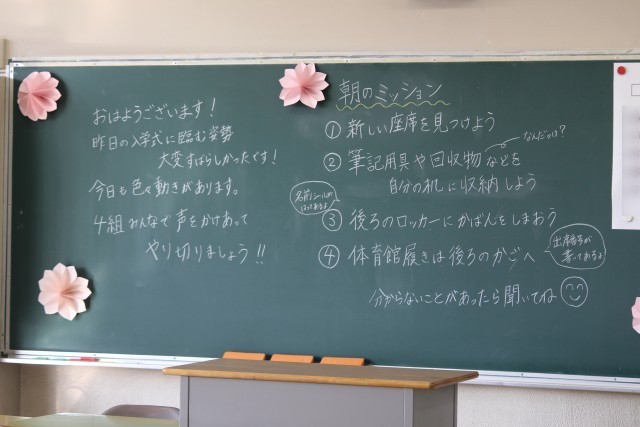 おはようございます!
昨日の入学式に臨む姿勢
大変すばらしかったです!
今日も色々動きがあります。
4組みんなで声をかけあって
やり切りましょう!!
朝のミッション
① 新しい座席を見つけよう
② 筆記用具や回収物などを
なんだっけ?
自分の机に収納しよう
名前シールが
はってあるよ
③ 後ろのロッカーにかばんをしまおう
④ 体育館履きは後ろのかごへ
出席番号が
書いてあるよ
分からないことがあったら聞いてね